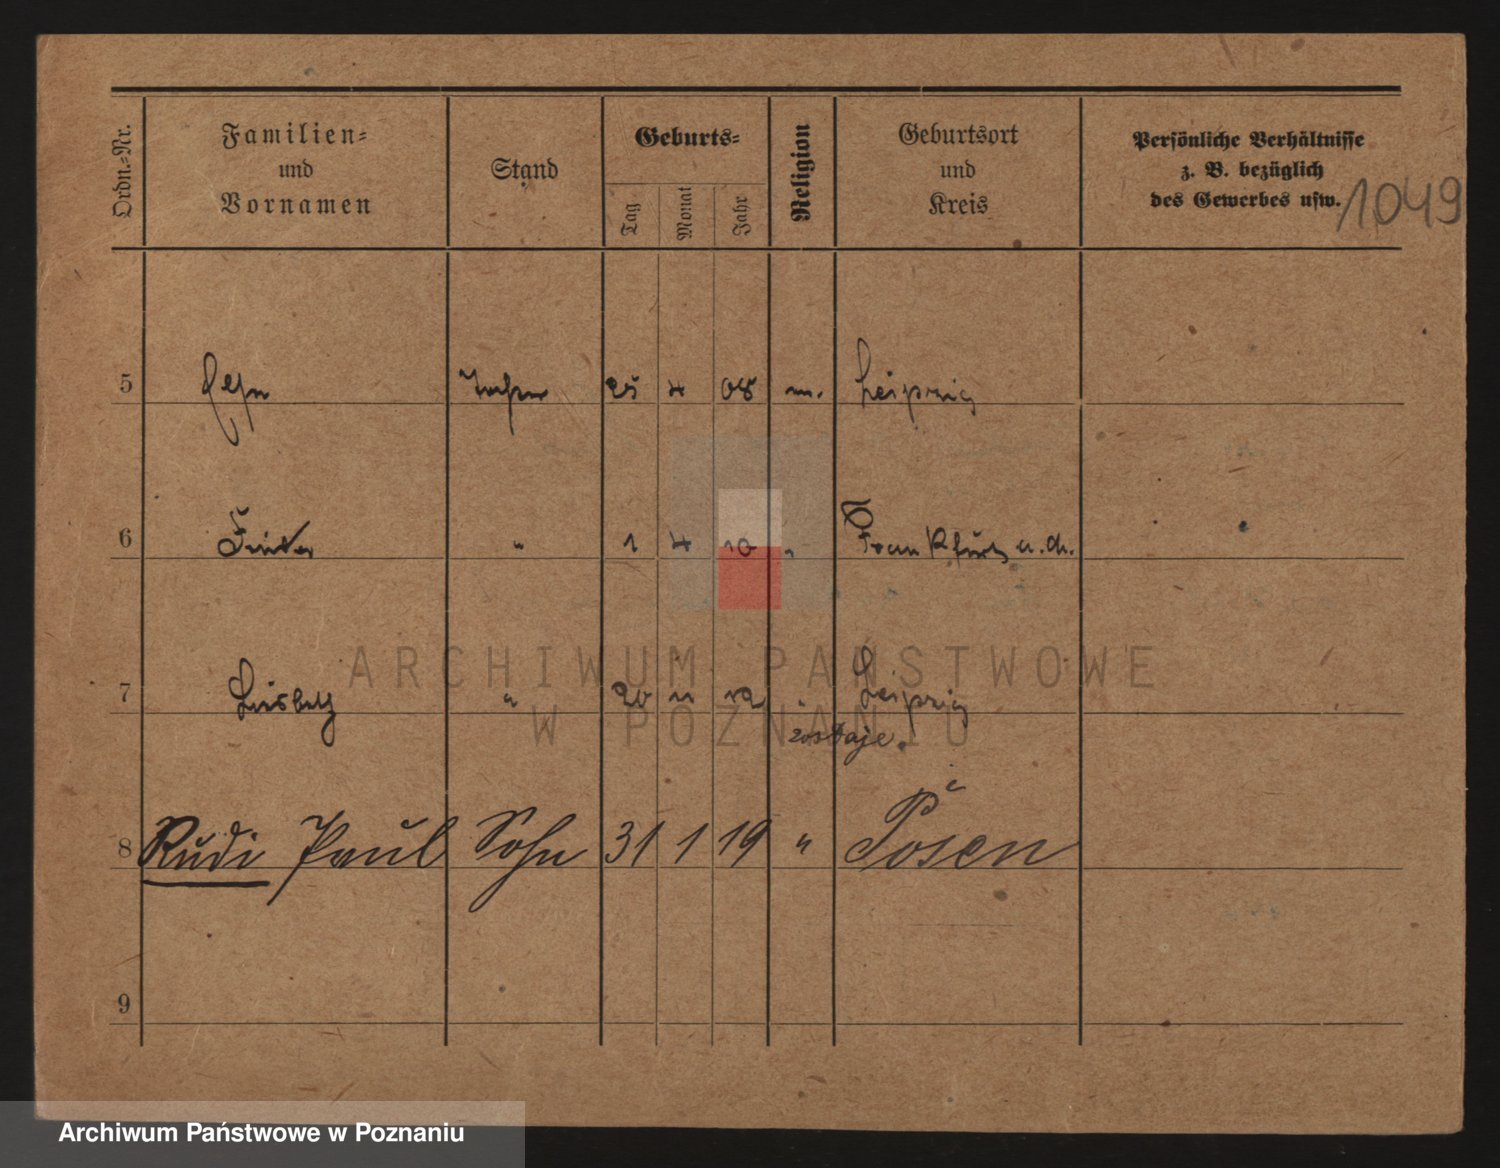 Ordn.-Nr.
Familien-
und
Vornamen
Stand
Geburts-
Tag
Monat
Jahr
Religion
Geburtsort
und
Kreis
Persönliche Verhältnisse
z. B. bezüglich
des Gewerbes usw.
1049
5 25 4 08 m. Leipzig
6 " 1 4 10 " Frankfurt a. M.
7 Lisbeth " 20 11 12 " Leipzig
zostaje.
8 Rudi Paul Sohn 31 1 19 " Posen
9
ARCHIWUM PAŃSTWOWE
W POZNANIU
Archiwum Państwowe w Poznaniu